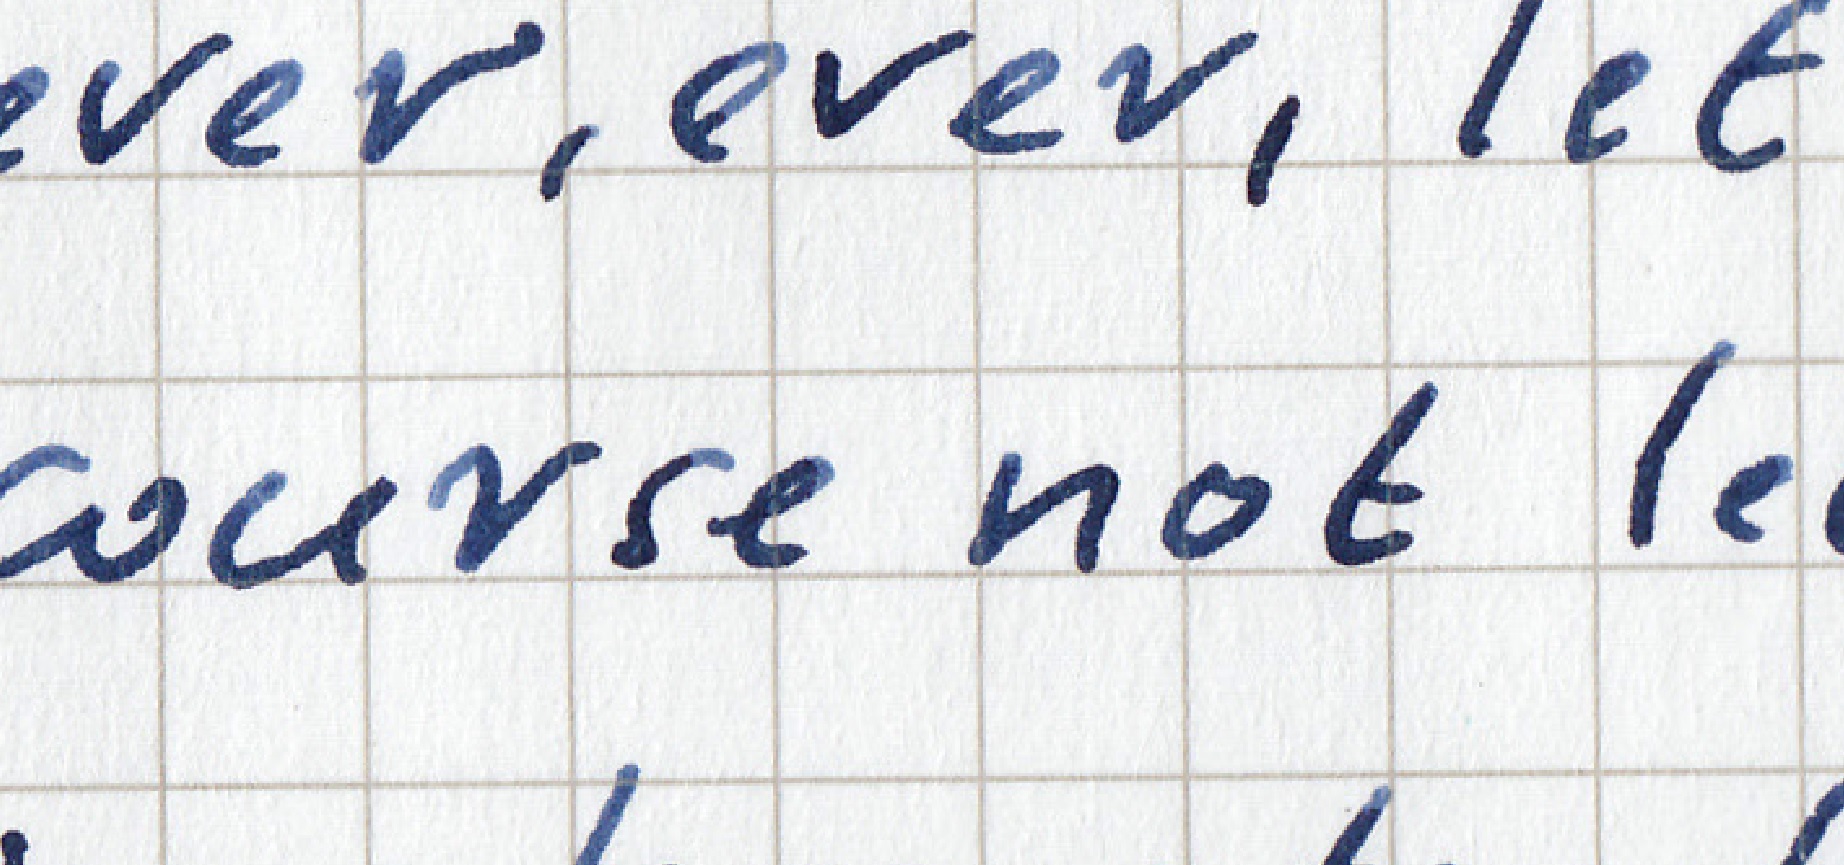 ever, ever, let
course not